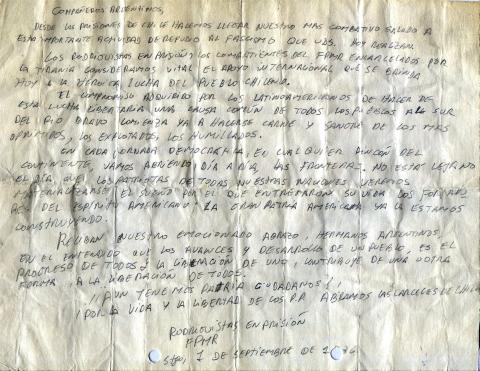 COMPAÑEROS ARGENTINOS,
DESDE LAS PRISIONES DE CHILE HACEMOS LLEGAR NUESTRO MAS COMBATIVO SALUDO A
ESTA IMPORTANTE ACTIVIDAD DE REPUDIO AL FASCISMO QUE UDS. HOY REALIZAN.
LOS RODRIGUISTAS EN PRISIÓN, LOS COMBATIENTES DEL FPMR ENCARCELADOS POR
LA TIRANIA CONSIDERAMOS VITAL EL APOYO INTERNACIONAL QUE SE BRINDA
HOY A LA HEROICA LUCHA DEL PUEBLO CHILENO.
EL COMPROMISO ADQUIRIDO POR LOS LATINOAMERICANOS DE HACER DE
ESTA LUCHA LIBERTARIA UNA CAUSA COMÚN DE TODOS LOS PUEBLOS AL SUR
DEL RIO BRAVO COMIENZA YA A HACERSE CARNE Y SANGRE DE LOS MAS
OPRIMIDOS, LOS EXPLOTADOS, LOS HUMILLADOS.
EN CADA JORNADA DEMOCRATICA, EN CUALQUIER RINCON DEL
CONTINENTE, VAMOS ABRIENDO DÍA A DÍA, LAS FRONTERAS. NO ESTÁ LEJANO
EL DÍA QUE LOS PATRIOTAS DE TODAS NUESTRAS NACIONES VEREMOS
EL SUEÑO POR EL QUE ENTREGARON SU VIDA LOS
DEL ESPIRITU AMERICANO: LA GRAN PATRIA AMERICANA YA LA ESTAMOS
CONSTRUYENDO.
RECIBAN NUESTRO EMOCIONADO ABRAZO, HERMANOS ARGENTINOS,
EN EL ENTENDIDO QUE LOS AVANCES Y DESARROLLO DE UN PUEBLO, ES EL
PROGRESO DE TODOS; LA LIBERACIÓN DE UNO, CONTRIBUYE DE UNA U OTRA
FORMA, A LA LIBERACIÓN DE TODOS.
¡¡AUN TENEMOS PATRIA CIUDADANOS!!
¡POR LA VIDA Y LA LIBERTAD DE LOS P.P. ABRAMOS LAS CARCELES DE CHILE
RODRIGUISTAS EN PRISIÓN
FPMR
Stgo, 7 DE SEPTIEMBRE DE